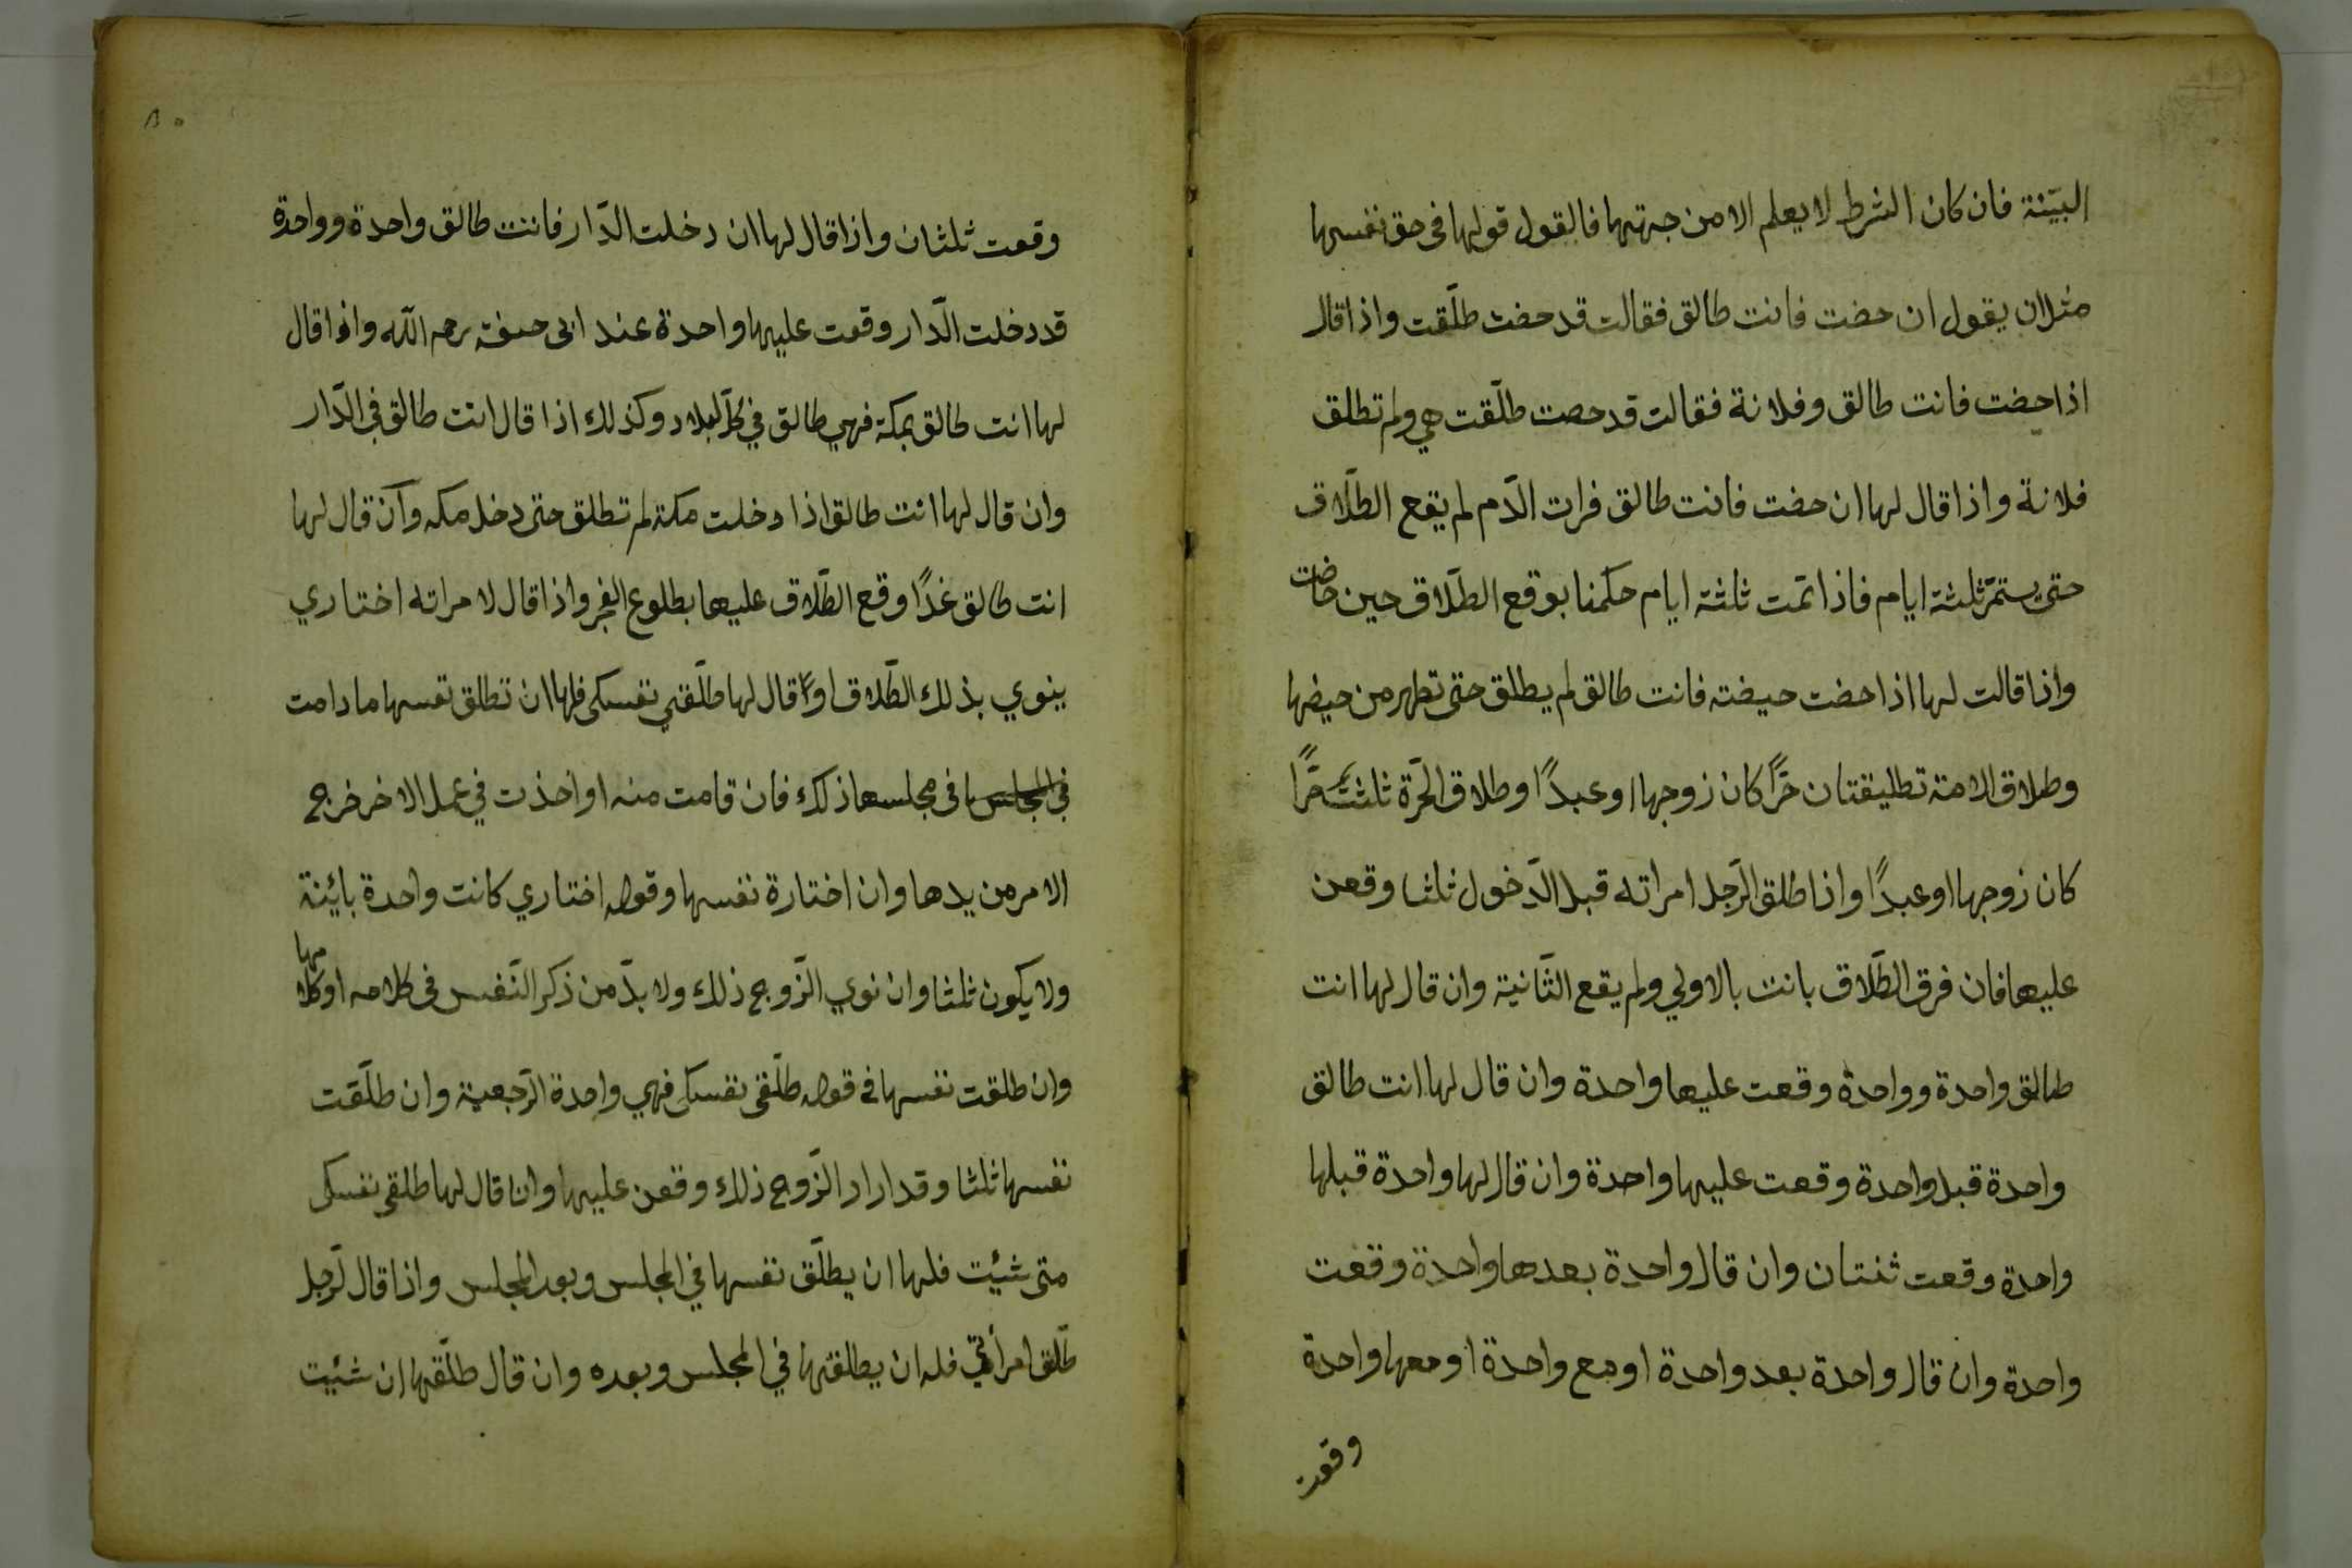 البيّنة فان كان الشرط لا يعلم الا من جهتها فالقول قولها فى حق نفسها
مثلا ان يقول ان حضت فانت طالق فقالت قد حضت طلّقت واذا قال
اذا حضت فانت طالق وفلانة فقالت قد حضت طلّقت هي ولم تطلق
فلانة واذا قال لها ان حضت فانت طالق فرات الدّم لم يقع الطلّاق
حتى يستمرّ ثلثة ايام فاذا تمت ثلثة ايام حكمنا بوقع الطلّاق حين حاضت
واذا قالت لها اذا حضت حيضته فانت طالق لم يطلق حتى تطهر من حيضها
وطلاق الامة تطليقتان حرًّا كان زوجها او عبدًا وطلاق الحرّة ثلثت حرًّا
كان زوجها او عبدًا واذا طلق الرّجل امراته قبل الدّخول ثلثا وقعن
عليها فان فرق الطلّاق بانت بالاولي ولم يقع الثّانية وان قال لها انت
طالق واحدة وواحدة وقعت عليها واحدة وان قال لها انت طالق
واحدة قبل واحدة وقعت عليها واحدة وان قال لها واحدة قبلها
واحدة وقعت ثنتان وان قال واحدة بعدها واحدة وقعت
واحدة وان قال واحدة بعد واحدة او مع واحدة او معها واحدة
وقعت
وقعت ثلثان واذا قال لها ان دخلت الدّار فانت طالق واحدة وواحدة
قد دخلت الدّار وقعت عليها واحدة عند ابى حنيفة رحمه الله واذا قال
لها انت طالق بمكة فهي طالق في كلّ البلاد وكذلك اذا قال انت طالق في الدّار
وان قال لها انت طالق اذا دخلت مكة لم تطلق حتى دخل مكه وآن قال لها
انت طالق غدًا وقع الطّلاق عليها بطلوع الفجر واذا قال لامراته اختاري
ينوي بذلك الطّلاق او قال لها طلّقي نفسكى فلها ان تطلق نفسها ما دامت
في مجلسها ذلك فان قامت منه او اخذت في عمل الاخر خرج
الامر من يدها وان اختارة نفسها وقوله اختاري كانت واحدة بائنة
ولا يكون ثلثا وان نوي الزّوج ذلك ولا بدّ من ذكر النّفس فى كلامه او كلامها
وان طلقت نفسها في قوله طلّقى نفسكى فهي واحدة الرّجعية وان طلّقت
نفسها ثلثا وقد اراد الزّوج ذلك وقعن عليها وان قال لها طلقى نفسكى
متى شئت فلها ان يطلّق نفسها في المجلس وبعد المجلس واذا قال لرّجل
طلّق امرأتي فله ان يطلقتها في المجلس وبعده وان قال طلّقها ان شئت